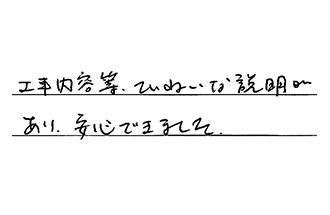 工事内容等、ていねいな説明が
あり、安心できました。